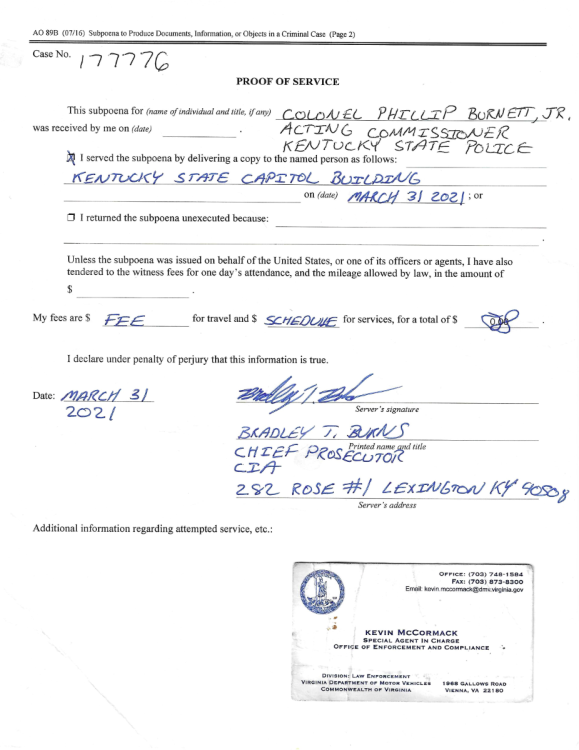 AO 89B (07/16) Subpoena to Produce Documents, Information, or Objects in a Criminal Case (Page 2)
Case No. 177776
PROOF OF SERVICE
This subpoena for (name of individual and title, if any) COLONEL PHILLIP BURNETT, JR.
was received by me on (date) . ACTING COMMISSIONER
KENTUCKY STATE POLICE
I served the subpoena by delivering a copy to the named person as follows:
KENTUCKY STATE CAPITOL BUILDING
on (date) MARCH 31 2021 ; or
I returned the subpoena unexecuted because:
Unless the subpoena was issued on behalf of the United States, or one of its officers or agents, I have also
tendered to the witness fees for one day's attendance, and the mileage allowed by law, in the amount of
$ .
My fees are $ FEE for travel and $ SCHEDULE for services, for a total of $ .
I declare under penalty of perjury that this information is true.
Date: MARCH 31
2021
Server's signature
BRADLEY T. BURNS
Printed name and title
CHIEF PROSECUTOR
CIA
282 ROSE #1 LEXINGTON KY 40508
Server's address
Additional information regarding attempted service, etc.:
OFFICE: (703) 748-1584
FAX: (703) 873-8300
Email: kevin.mccormack@dmv.virginia.gov
KEVIN MCCORMACK
SPECIAL AGENT IN CHARGE
OFFICE OF ENFORCEMENT AND COMPLIANCE
DIVISION: LAW ENFORCEMENT
VIRGINIA DEPARTMENT OF MOTOR VEHICLES 1968 GALLOWS ROAD
COMMONWEALTH OF VIRGINIA VIENNA, VA 22180